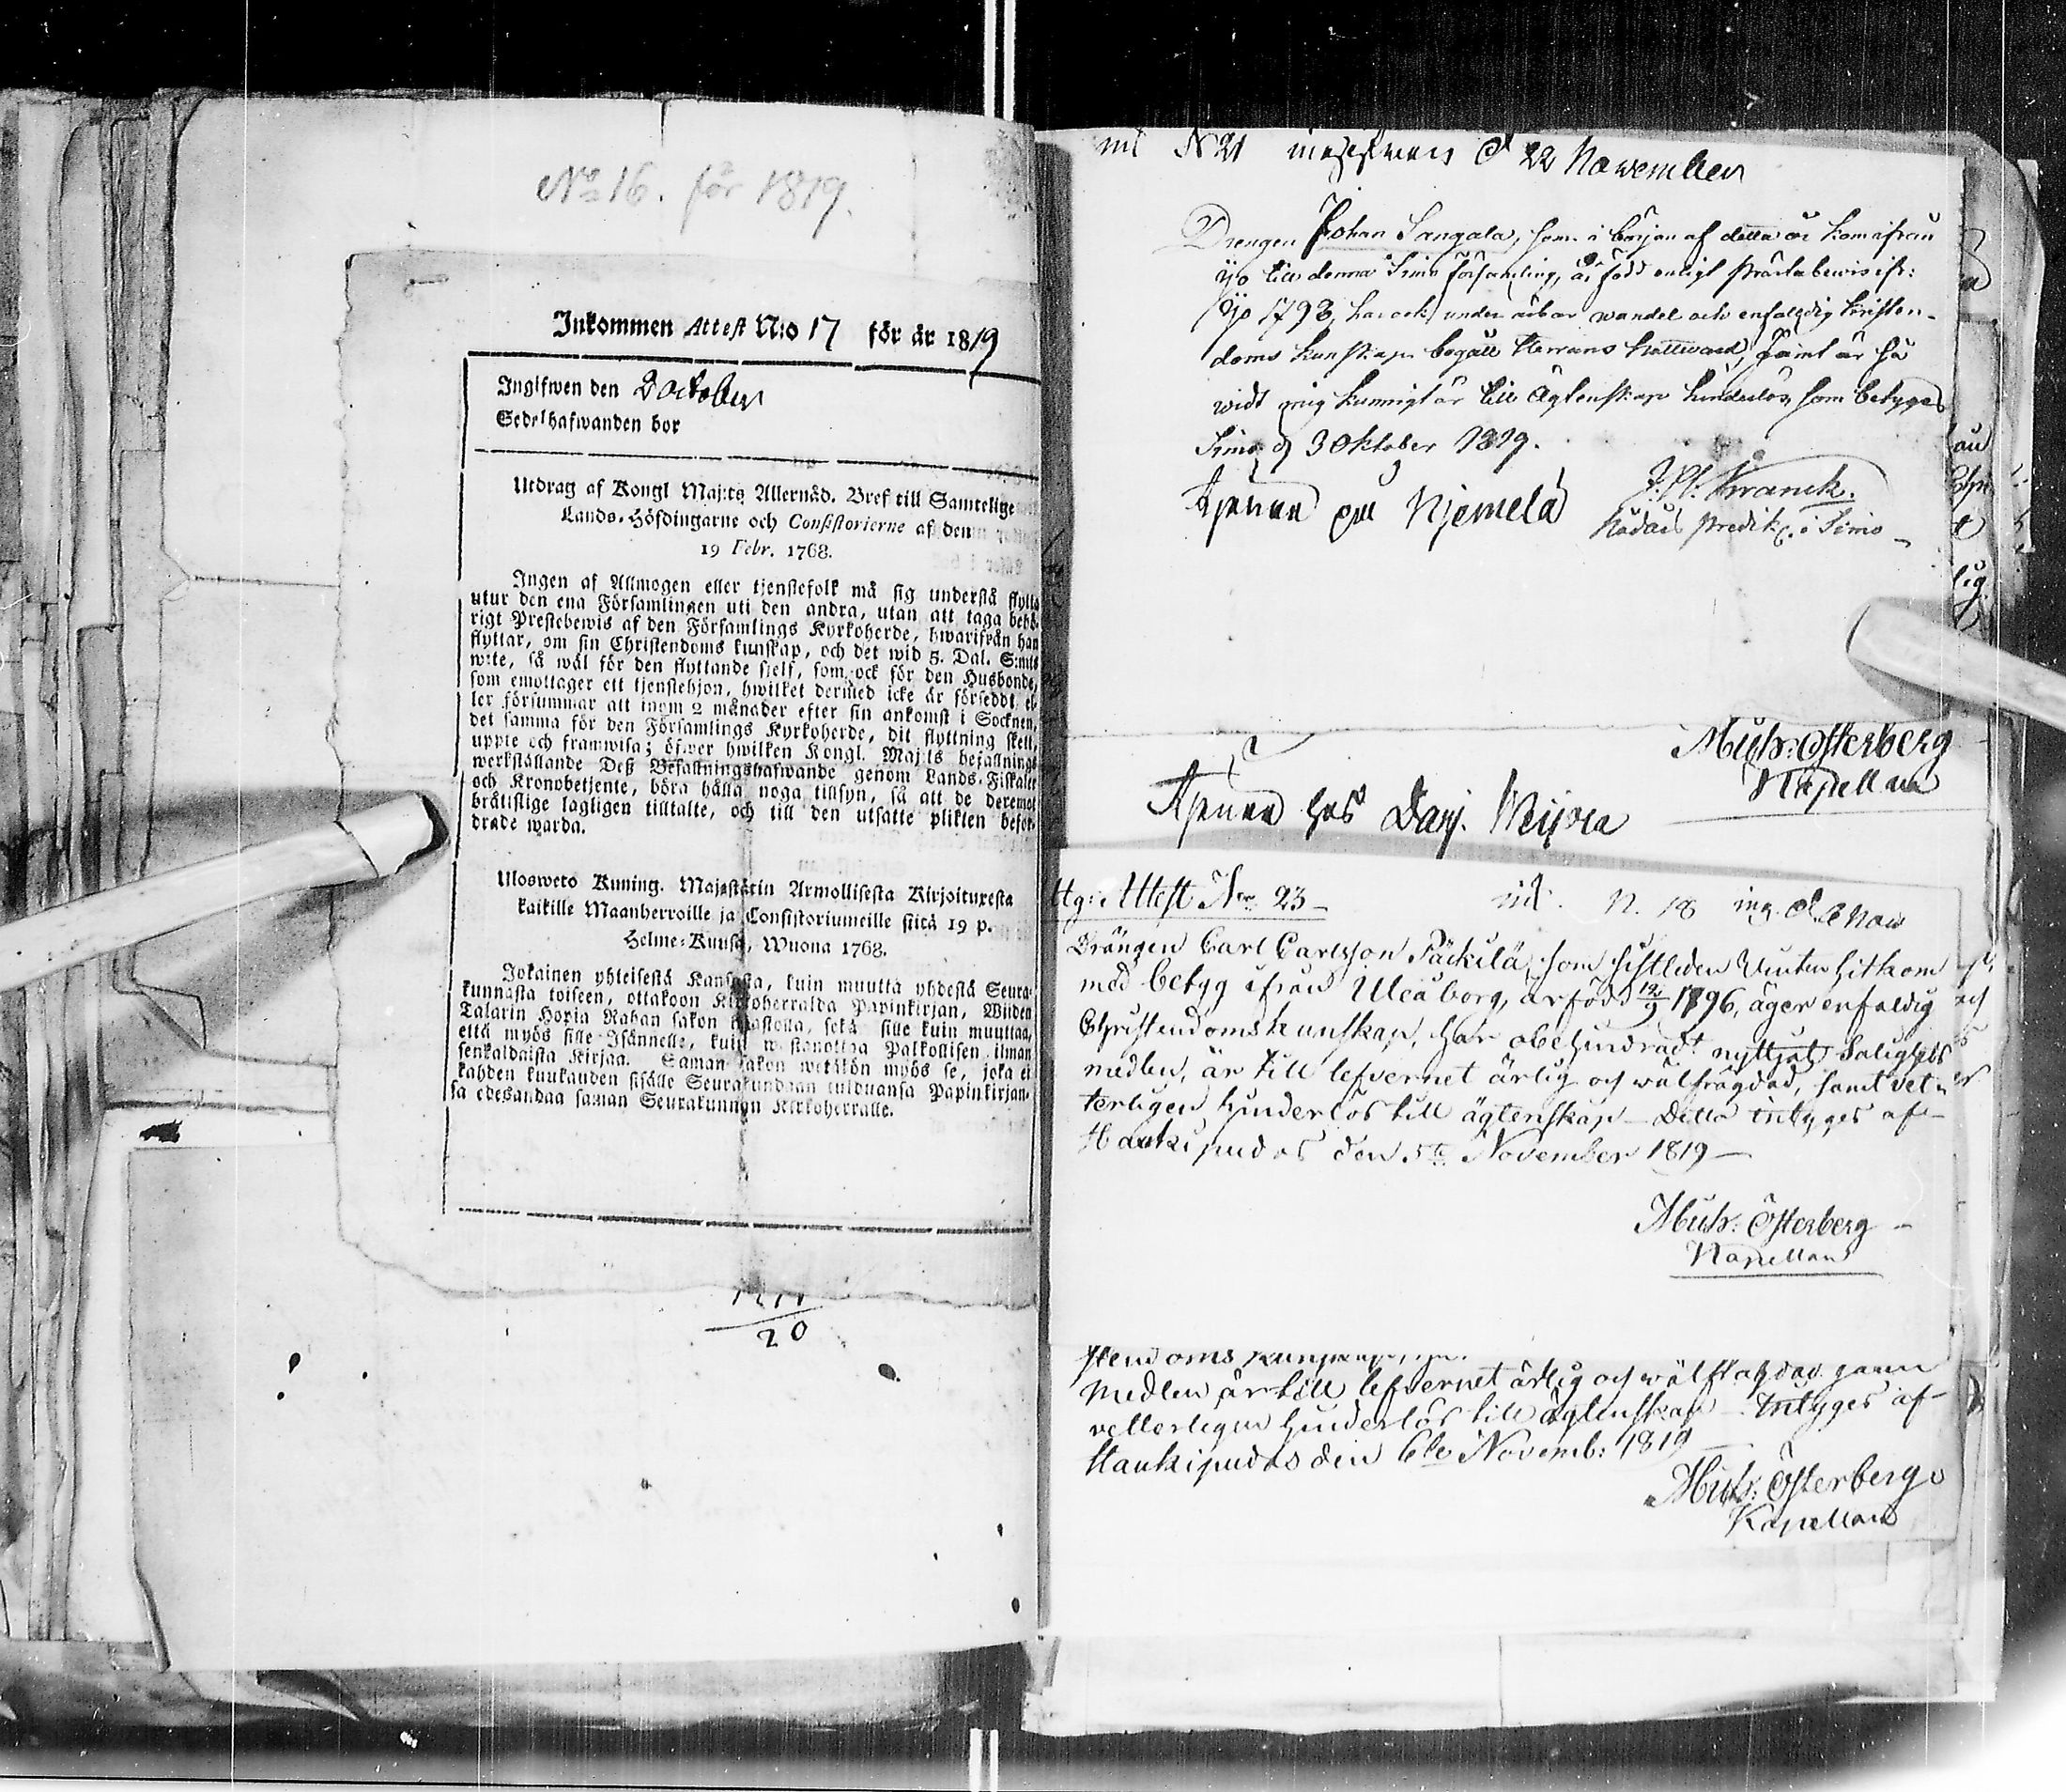 No 16. för 1819.
Inkommen Attest N:o 17 för år 1819
Ingifwen den 2 October
Sedelhafwanden bor
Utdrag af Kongl Maj:ts Allernåd. Bref till Samtelige
Lands-Höfdingarne och Consistorierne af den
19 Febr. 1768.
Ingen af Allmogen eller tjenstefolk må sig understå flytta
utur den ena Församlingen uti den andra, utan att taga behö-
rigt Prestebewis af den Församlings Kyrkoherde, hwarifrån han
flyttar, om sin Christendoms kunskap, och det wid 5. Dal. S:mts
wite, så wäl för den flyttande sjelf, som ock för den Husbonde,
som emottager ett tjenstehjon, hwilket dermed icke är försedd, el-
ler försummar att inom 2 månader efter sin ankomst i Socknen,
det samma för den Församlings Kyrkoherde, dit flyttning skett,
uppte och framwisa; öfwer hwilken Kongl. Maj:ts befallnings
werkställande Deß Befallningshafwande genom Lands-Fiskaler
och Kronobetjente, böra hålla noga tillsyn, så att de deremot
brätislige lagligen tilltalte, och till den utsatte plikten befor-
drade warda.
Ulosweto Kuning. Majestätin Armollisesta Kirjoituxesta
kaikille Maanherroille ja Consistoriumeille siitä 19 p.
Helme-Kuusa, Wuona 1768.
Jokainen yhteisestä Kansasta, kuin muutta yhdestä Seura-
kunnasta toiseen, ottakoon Kirkoherralda Papinkirjan, Wiiden
Talarin Hopia Rahan sakon haastolla, sekä sille kuin muuttaa,
että myös sille Isännelle, kuin wastanottaa Palkollisen ilman
senkaldaista Kirjaa. Saman sakon wetäkön myös se, joka ei
kahden kuukauden sisälle Seurakundaan tulduansa Papinkirjan-
sa edesandaa saman Seurakunnan Kirkoherralle.
20
N 21 d 22 November
Drengen Johan Sangala, som i början af detta år kom ifrån
Ijo till denna Simo församling, är född enligt prästabewis ifr:
Ijo 1793, har ock under ärbar wandel och enfaldig kristen-
doms kunskap begått Herrans nattward, samt är så
widt mig kunnigt är till ägtenskap hinderlös, som betygas
Simo d 3 Oktober 1819.
Krank.
predik. i Simo
Tjenar på Njemelä
Österberg
Kapellan
Tjenar hos Danj.
Attest No 23
n. 18
Drängen Carl Carlsson Päckilä, som sistleden Winter hitkom
med betyg ifrån Uleåborg, är född 12/9 1796, äger enfaldig
Christendomskunskap, har obehindradt nyttjat Salighets
medlen, är till lefvernet ärlig och wälfrägdad, samt vet-
terligen hinderlös till ägtenskap – Detta intyges af
Haukipudas den 5te November 1819 –
Österberg
Kapellan
stendoms
medlen är till lefvernet ärlig och
vetterligen hinderlös till ägtenskap – Intyges af
Haukipudas den 6te Novemb: 1819
Österberg
Kapellan